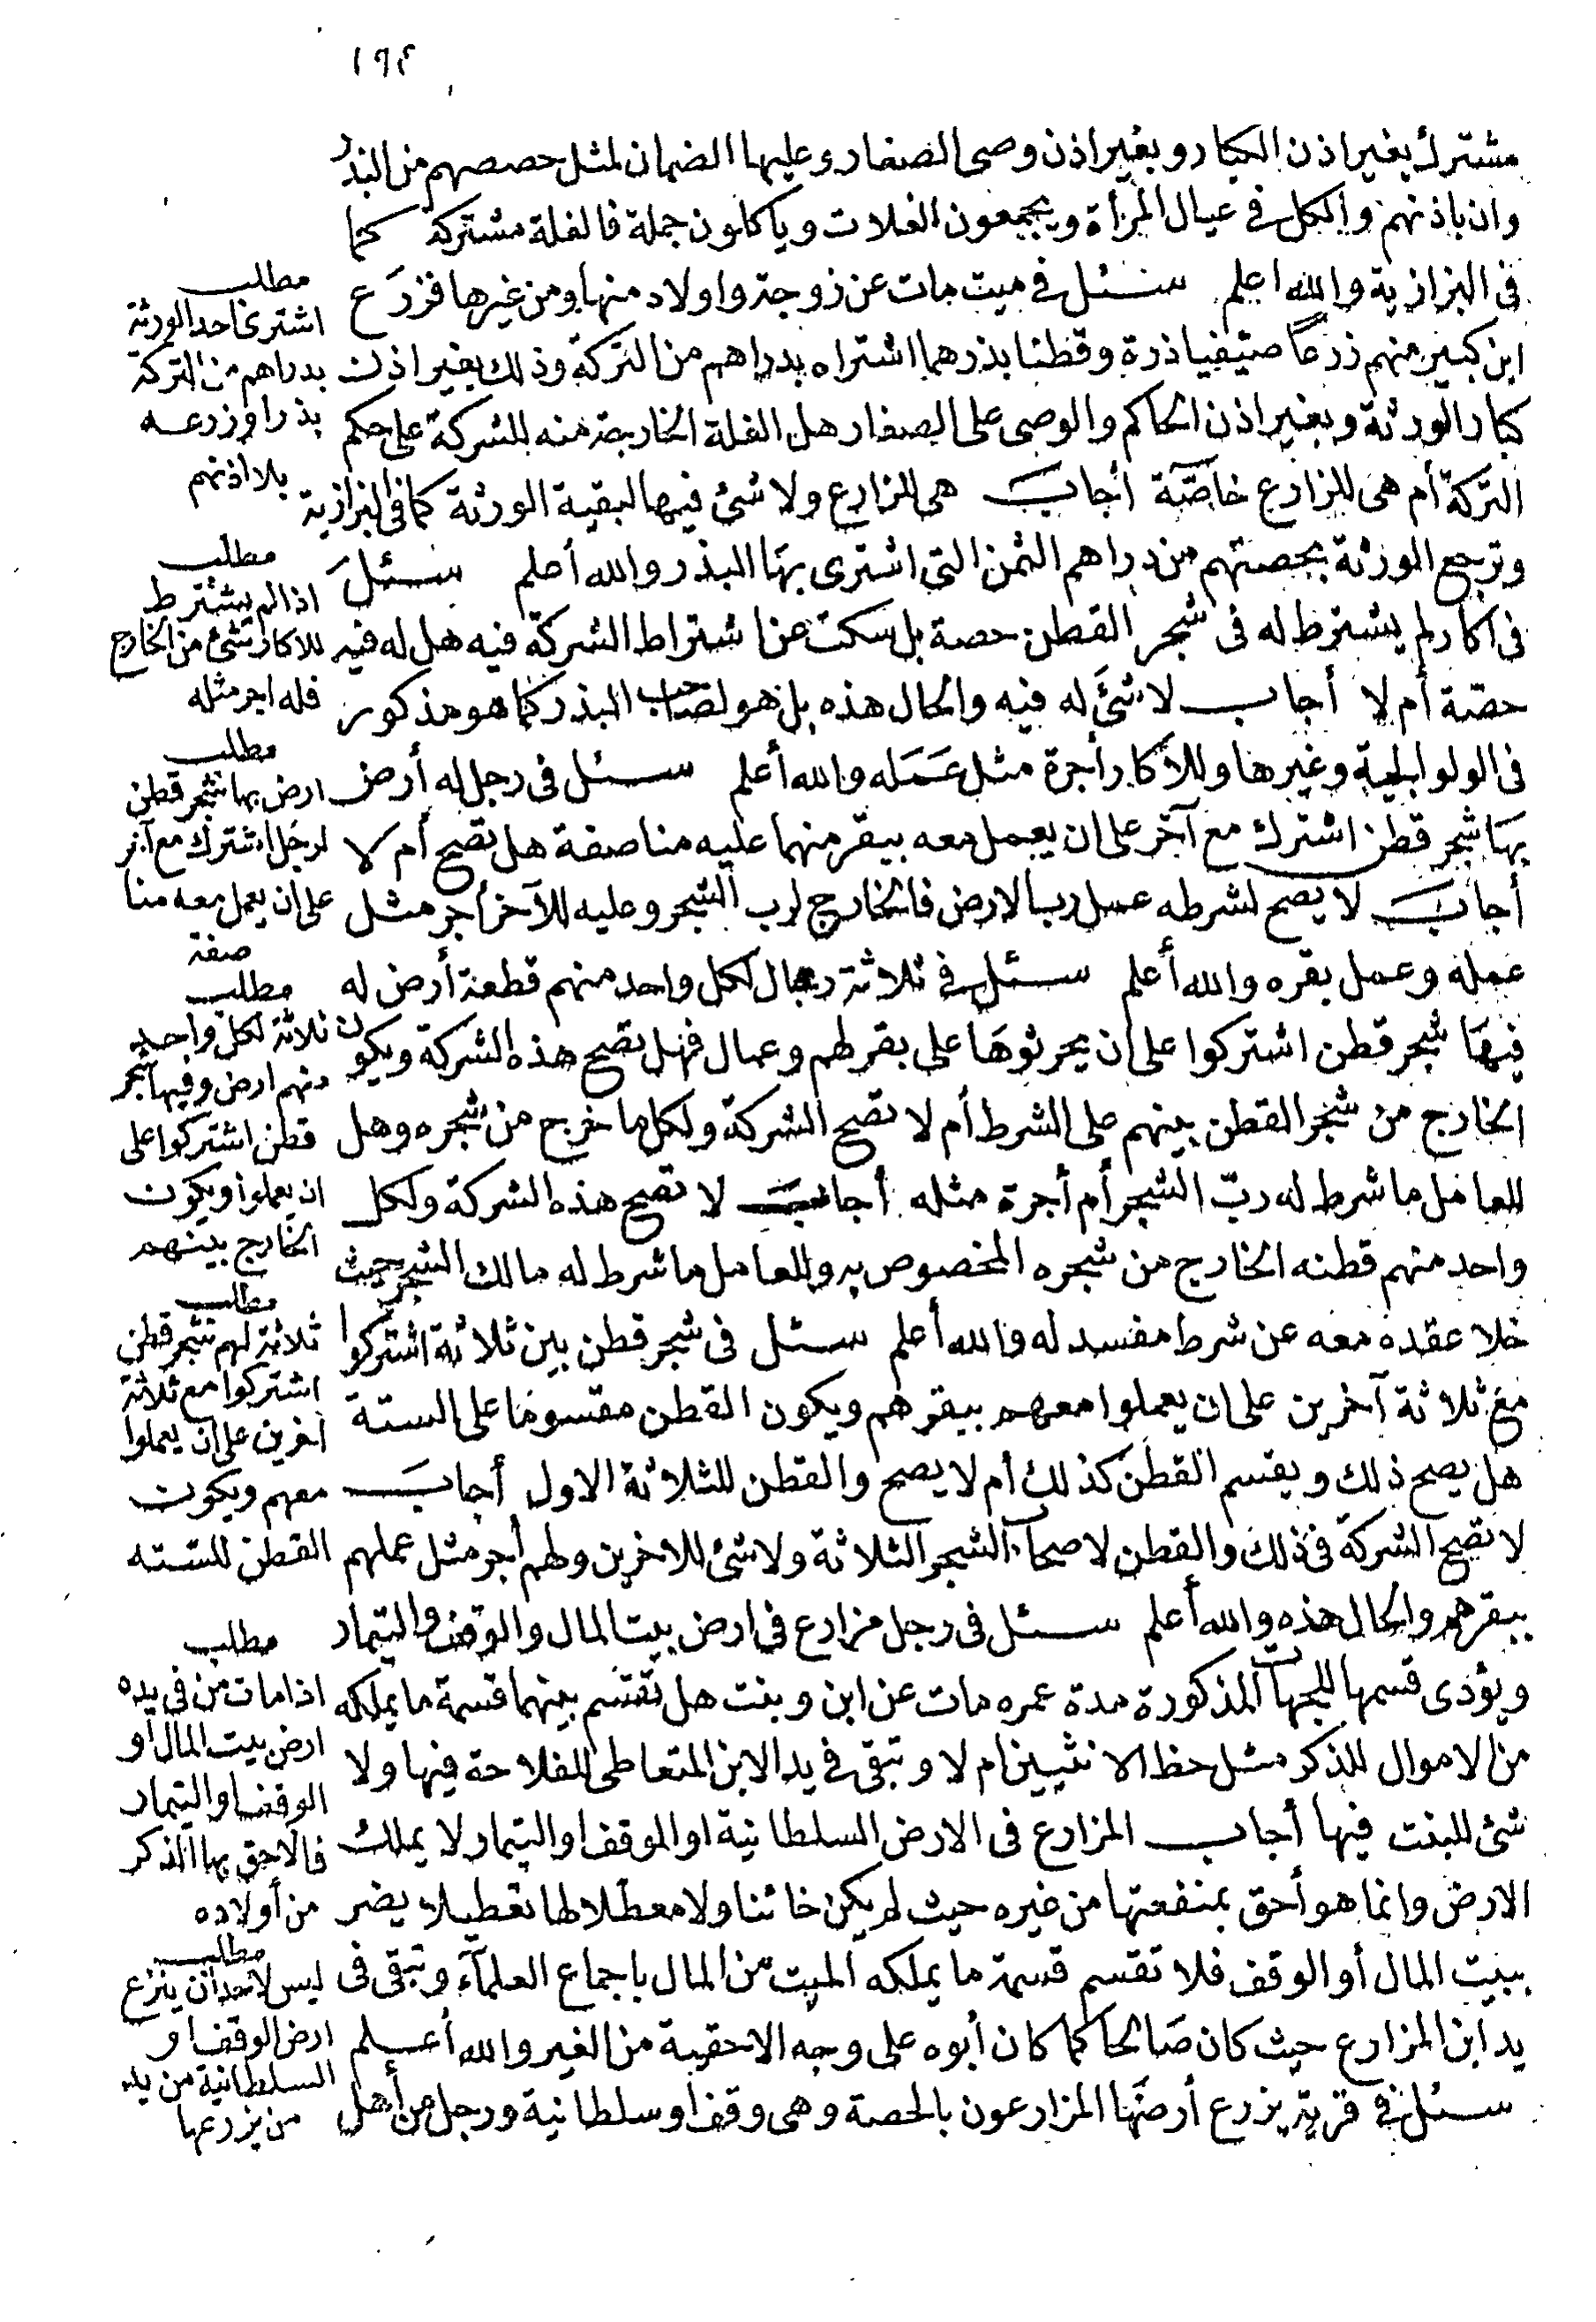 ١٩٤
مشترك بغير اذن الكبار وبغير اذن وصى الصغار وعليها الضمان لمثل حصصهم من البذر
وان باذنهم والكل فى عيال المرأة ويجمعون الغلات وياكلون جملة فالغلة مشتركة كما
فى البزازية والله اعلم سئل فى ميت مات عن زوجة واولاد منها ومن غيرها فزرع
ابن كبير منهم زرعا صيفيا ذرة وقطنا بذرهما اشتراه بدراهم من التركة وذلك بغير اذن
كبار الورثة وبغير اذن الحاكم والوصى على الصغار هل الغلة الخارجة منه للشركة على حكم
التركة أم هى للزارع خاصّة أجاب هى للزارع ولا شئ فيها لبقية الورثة كما فى البزازية
وترجع الورثة بحصتهم من دراهم الثمن التى اشترى بها البذر والله أعلم سئل
فى اكار لم يشترط له فى شجر القطن حصة بل سكت عن اشتراط الشركة فيه هل له فيه
حصّة أم لا أجاب لا شئ له فيه والحال هذه بل هو لصاحب البذر كما هو مذكور
فى الولوالجية وغيرها وللأكار أجرة مثل عمله والله أعلم سئل فى رجل له أرض
بها شجر قطن اشترك مع آخر على ان يعمل معه ببقر منهما عليه مناصفة هل تصح أم لا
أجاب لا يصح لشرطه عمل رب الارض فالخارج لرب الشجر وعليه للآخر أجر مثل
عمله وعمل بقره والله أعلم سئل فى ثلاثة رجال لكل واحد منهم قطعة أرض له
فيها شجر قطن اشتركوا على ان يحرثوها على بقر لهم وعمال فهل تصح هذه الشركة ويكون
الخارج من شجر القطن بينهم على الشرط أم لا تصح الشركة ولكل ما خرج من شجره وهل
للعامل ما شرط له ربّ الشجر أم أجرة مثله أجاب لا تصح هذه الشركة ولكل
واحد منهم قطنه الخارج من شجره المخصوص به وللعامل ما شرط له مالك الشجر حيث
خلا عقده معه عن شرط مفسد له والله أعلم سئل فى شجر قطن بين ثلاثة اشتركوا
مع ثلاثة آخرين على ان يعملوا معهم ببقرهم ويكون القطن مقسوما على الستة
هل يصح ذلك ويقسم القطن كذلك أم لا يصح والقطن للثلاثة الاول أجاب
لا تصح الشركة فى ذلك والقطن لاصحاب الشجر الثلاثة ولا شئ للاخرين ولهم أجر مثل عملهم
ببقرهم والحال هذه والله أعلم سئل فى رجل مزارع فى ارض بيت المال والوقف والتيمار
ويؤدى قسمها للجهات المذكورة مدة عمره مات عن ابن وبنت هل تقتسم بينهما قسمة ما يملكه
من الاموال للذكر مثل حظ الانثيين ام لا وتبقى فى يد الابن المتعاطى للفلاحة فيها ولا
شئ للبنت فيها أجاب المزارع فى الارض السلطانية او الموقف او التيمار لا يملك
الارض وانما هو أحق بمنفعتها من غيره حيث لم يكن خائنا ولا معطلا لها تعطيلا يضر
ببيت المال أو الوقف فلا تقسم قسمة ما يملكه الميت من المال باجماع العلمآء وتبقى فى
يد ابن المزارع حيث كان صالحا كما كان أبوه على وجه الاحقية من الغير والله أعلم
سئل فى قرية يزرع أرضها المزارعون بالحصة وهى وقف او سلطانية ورجل من أهل
مطلب
اشترى احد الورثة
بدراهم من التركة
بذرا وزرعه
بلا اذنهم
مطلب
اذا لم يشترط
للاكار شئ من الخارج
فله اجر مثله
مطلب
ارض بها شجر قطن
لرجل اشترك مع آخر
على ان يعمل معه منا
صفة
مطلب
ثلاثة لكل واحد
منهم ارض وفيها شجر
قطن اشتركوا على
ان يعملوا ويكون
الخارج بينهم
مطلب
ثلاثة لهم شجر قطن
اشتركوا مع ثلاثة
آخرين على ان يعملوا
معهم ويكون
القطن للستة
مطلب
اذا مات من فى يده
ارض بيت المال او
الوقف او التيمار
فالاحق بها الذكر
من أولاده
مطلب
ليس لاحد ان ينزع
ارض الوقف او
السلطانية من يد
من يزرعها